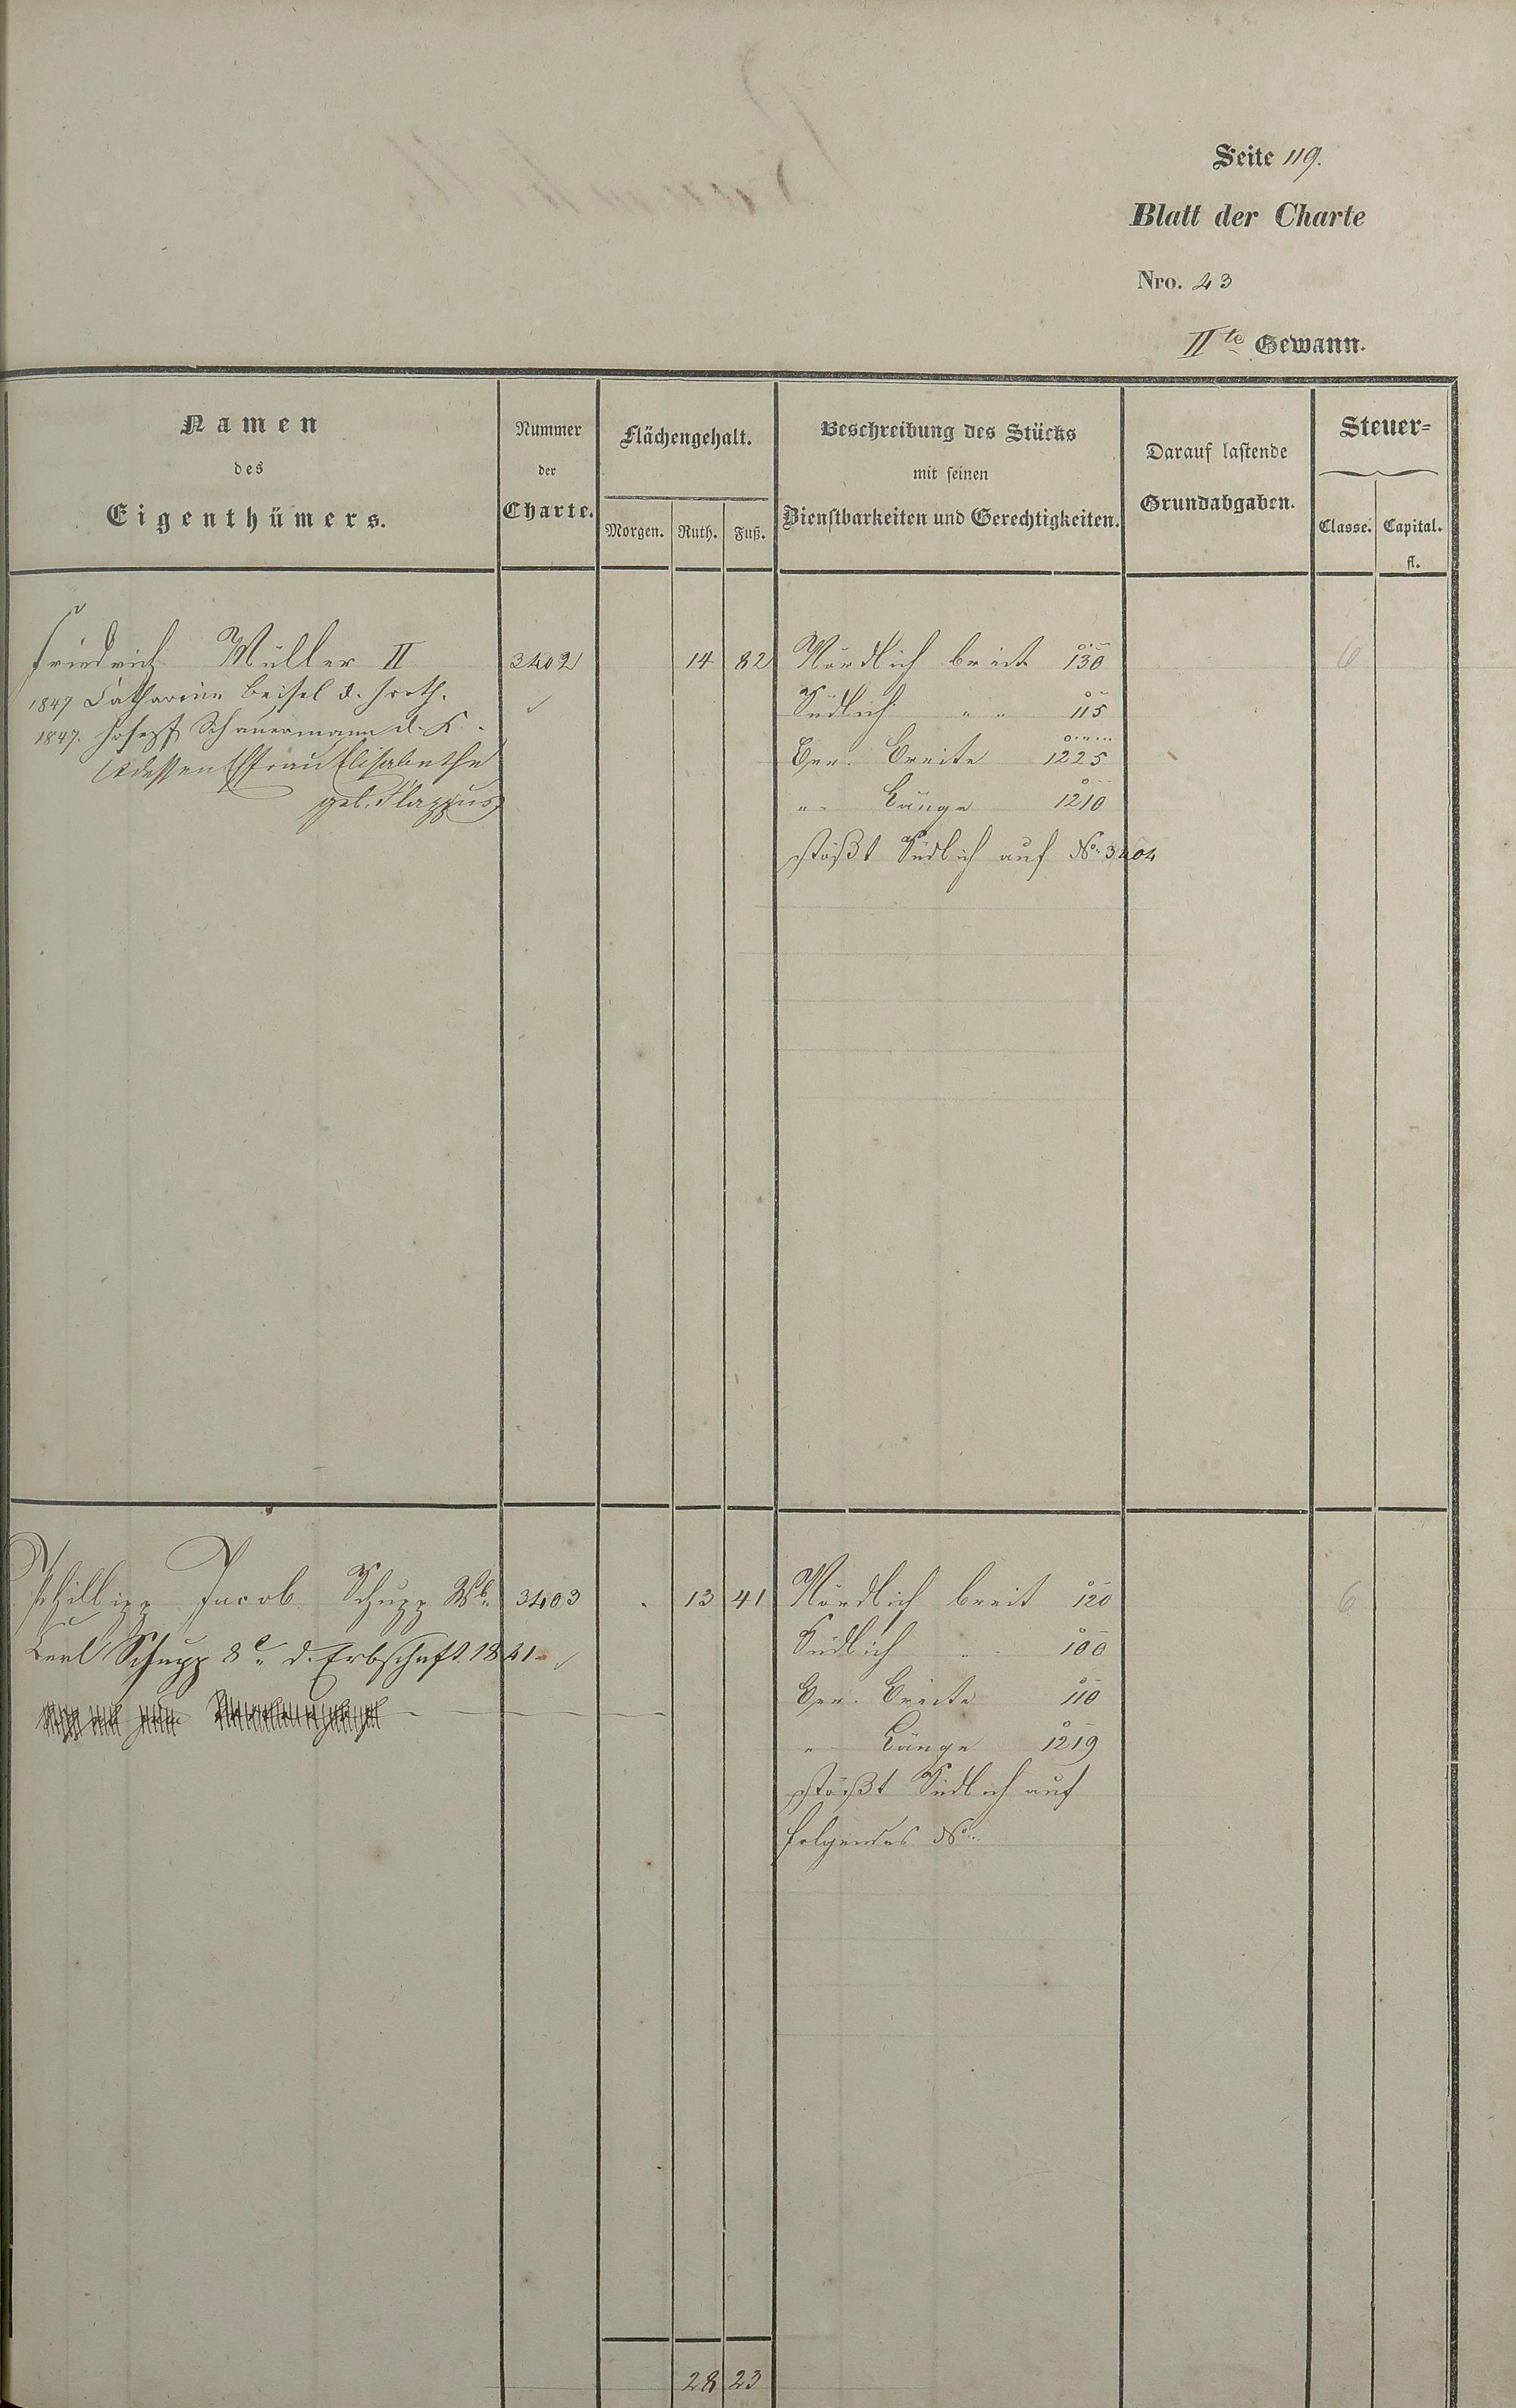 Seite 119.
Blatt der Charte
Nro. 43
IIte Gewann.
Namen des Eigenthümers.
Nummer der Charte.
Flächengehalt.
Morgen. Ruth. Fuß.
Beschreibung des Stücks
mit seinen
Dienstbarkeiten und Gerechtigkeiten.
Darauf lastende
Grundabgaben.
Steuer=
Classe. Capital.
fl.
Friedrich Müller II 3402 14 82 Nördlich breit 130 6
1847 Catharine Beisel d.
Südlich " " 115
1847. Joseph Schauermann d. K.
Ger. Breite 1225
dessen Efrau Elisabethe
"- Länge 1210
geb. Plappus
stößt Südlich auf No. 3404
Phillipp Jacob Schupp Wb. 3403 . 13 41 Nördlich breit 120 6
Carl Schupp d. Erbschaft. 1841-
Südlich " - 100
Ger. Breite 110
" Länge 1219
stößt Südlich auf
folgendes No.
28 23